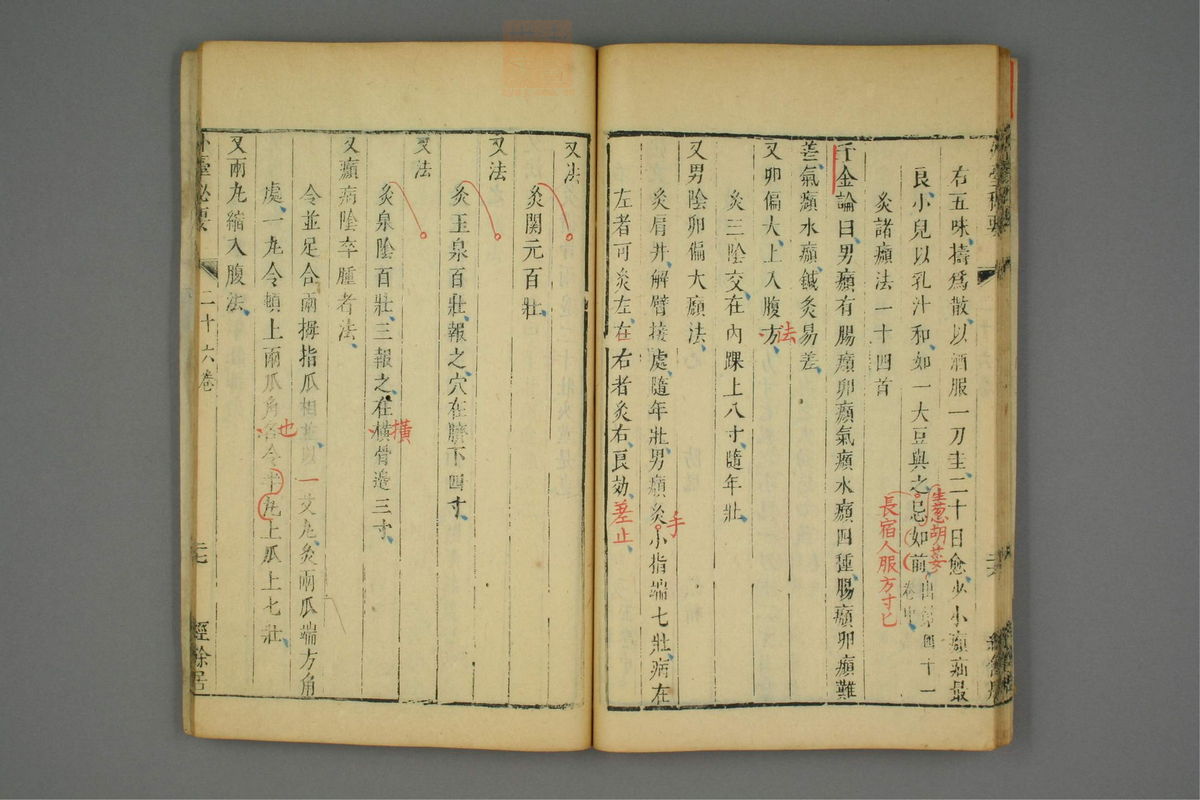 右五味擣為散以酒服一刀圭二十日愈少小㿗疝最
良小兒以乳汁和如一大豆與之忌如前出第四十一卷中
生葱胡荽
長宿人服方寸匕
灸諸㿗法一十四首
千金論曰男㿗有腸㿗卵㿗氣㿗水㿗四種腸㿗卵㿗難
差氣㿗水㿗鍼灸易差
又卵偏大上入腹方
法
灸三陰交在內踝上八寸隨年壯
又男陰卵偏大㿗法
灸肩井解臂接處隨年壯男㿗灸小指端七壯病在
手
左者可灸左在右者灸右良効
差止
又法
灸関元百壯
又法
灸玉泉百壯報之穴在臍下四寸
又法
灸泉陰百壯三報之在橫骨邉三寸
橫
又㿗病陰卒腫者法
令並足合兩拇指爪相並以一艾丸灸兩爪端方角
處一丸令頓上兩爪角各令半丸上爪上七壯
也
又兩丸縮入腹法
外臺秘要
二十六卷
經餘居